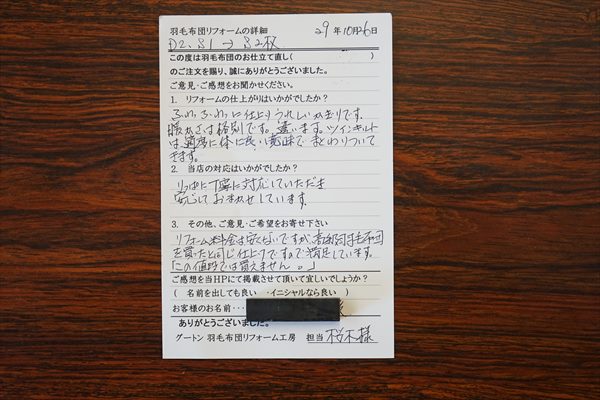 羽毛布団リフォームの詳細 29年10月6日
D2、S1 → S2枚
この度は羽毛布団のお仕立て直し( )
のご注文を賜り、誠にありがとうございました。
ご意見・ご感想をお聞かせください。
1. リフォームの仕上がりはいかがでしたか?
ふわっふわっに仕上りうれしいかぎりです。
暖かさは格別です。違います。ツインキルト
は適度に体に良い意味でまとわりついて
きます。
2. 当店の対応はいかがでしたか?
りっぱに丁寧に対応していただき
安心しておまかせしています。
3. その他、ご意見・ご希望をお寄せ下さい
リフォーム料金は安くないですが、高級羽毛布団
を買ったと同じ仕上りですので満足しています。
「この値段では買えません。」
ご感想を当HPにて掲載させて頂いて宜しいでしょうか?
( 名前を出しても良い ・イニシャルなら良い )
お客様のお名前・・・
ありがとうございました。
グートン 羽毛布団リフォーム工房 担当 桜木様